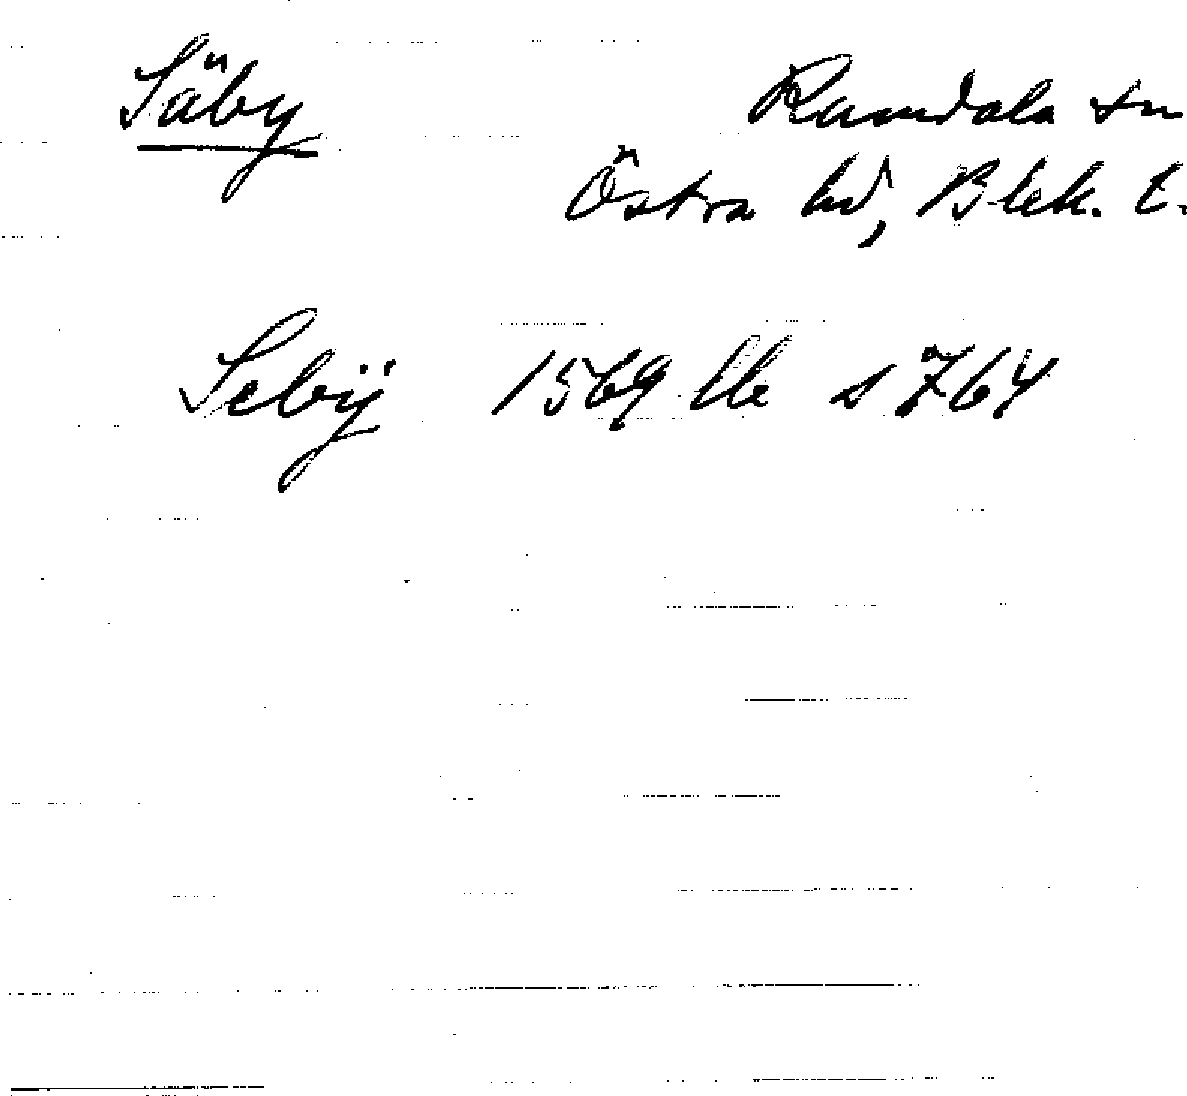 Säby Ramdala sn
Östra hd, Blek. l.
Sebÿ 1569 lb s 764